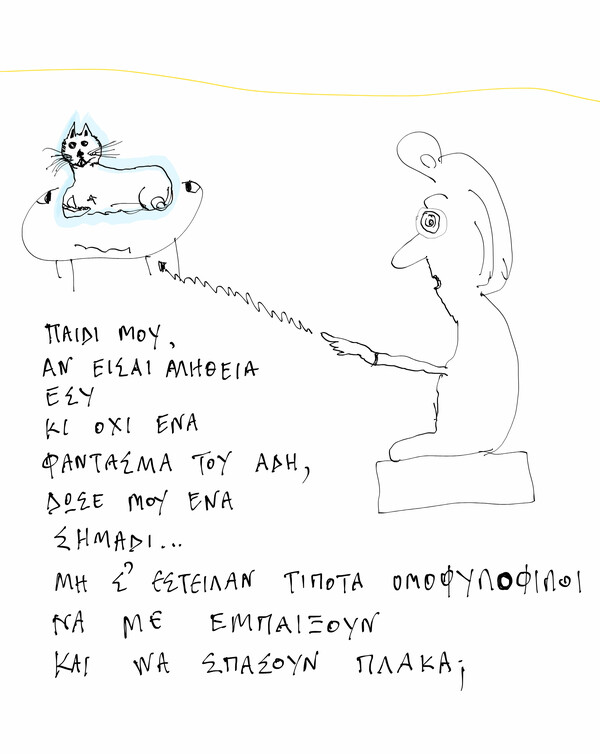 ΠΑΙΔΙ ΜΟΥ,
ΑΝ ΕΙΣΑΙ ΑΛΗΘΕΙΑ
ΕΣΥ
ΚΙ ΟΧΙ ΕΝΑ
ΦΑΝΤΑΣΜΑ ΤΟΥ ΑΔΗ,
ΔΩΣΕ ΜΟΥ ΕΝΑ
ΣΗΜΑΔΙ...
ΜΗ Σ' ΕΣΤΕΙΛΑΝ ΤΙΠΟΤΑ ΟΜΟΦΥΛΟΦΙΛΟΙ
ΝΑ ΜΕ ΕΜΠΑΙΞΟΥΝ
ΚΑΙ ΝΑ ΣΠΑΣΟΥΝ ΠΛΑΚΑ;